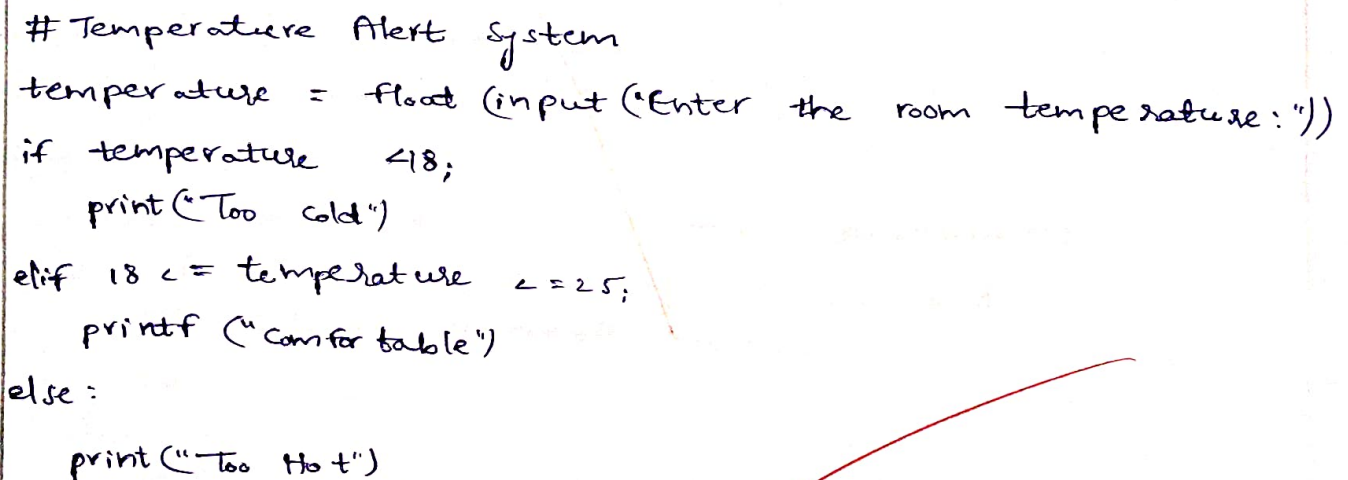 # Temperature Alert System
temperature = float (input ("Enter the room temperature:"))
if temperature <18;
print ("Too cold")
elif 18 <= temperature <=25;
printf ("comfortable")
else:
print ("Too Hot")